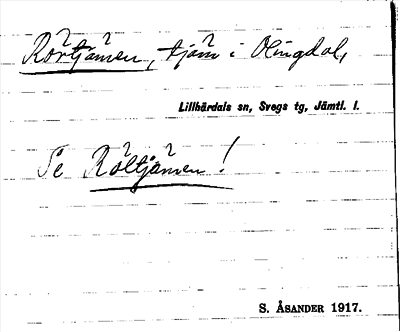 Rörtjärnen, tjärn i Olingdal,
Lillhärdals sn, Svegs tg, Jämtl. l.
Se Röltjärnen!
S. ÅSANDER 1917.